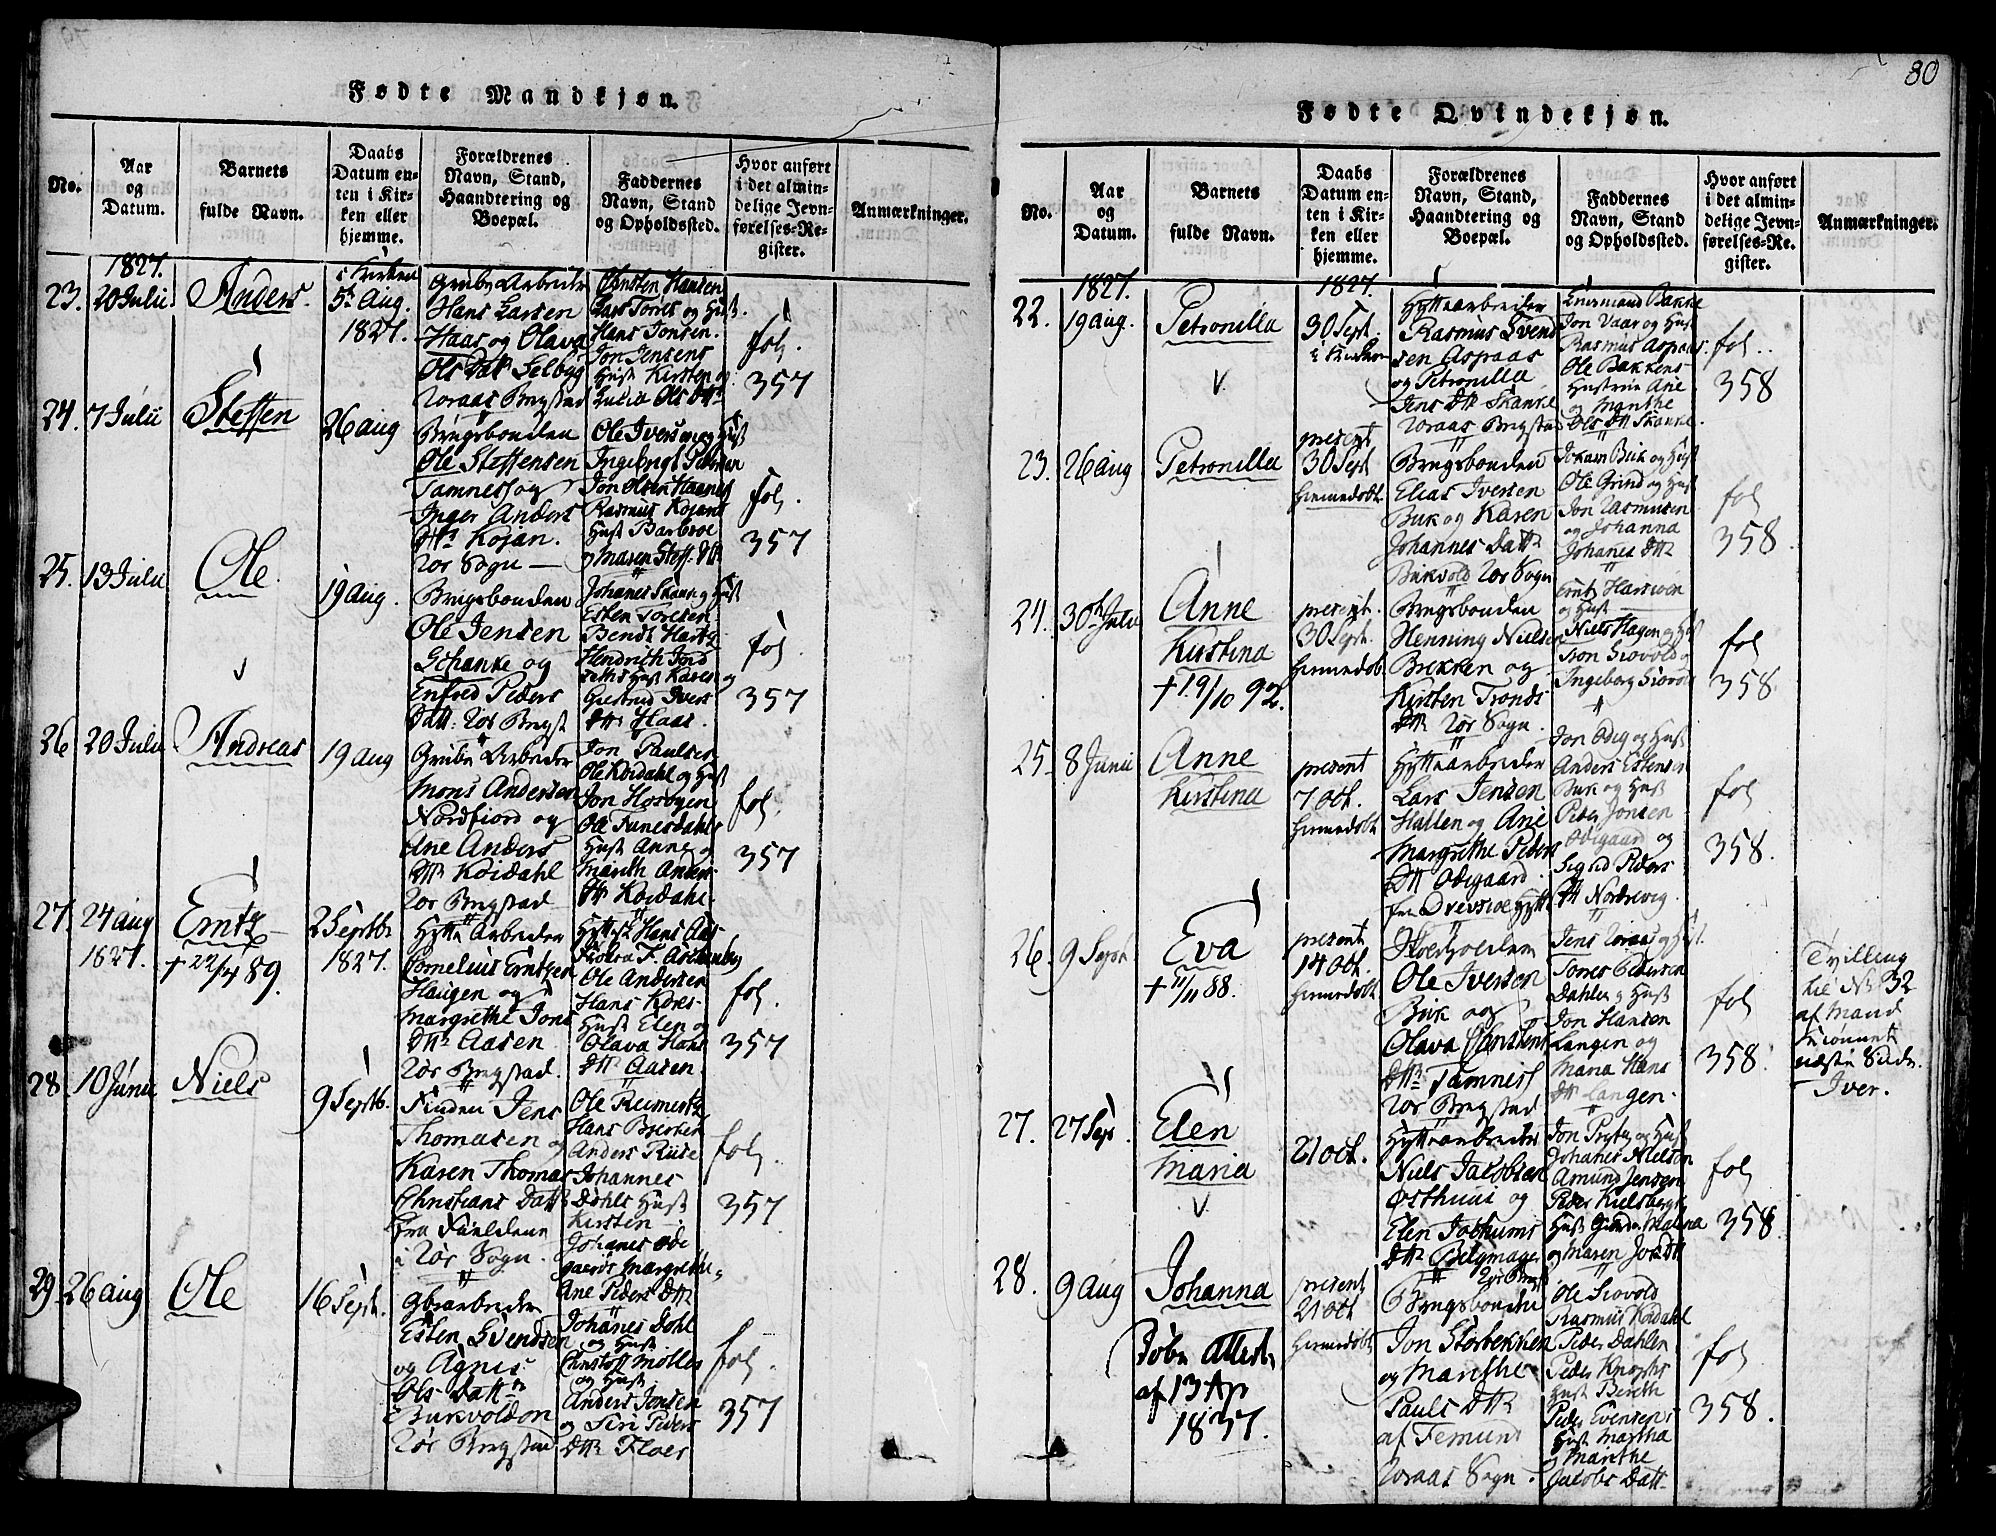 80
Fødte Mandkjøn.
No.
Aar og Datum.
Barnets fulde Navn.
Daabs Datum enten i Kirken eller hjemme.
Forældrenes Navn, Stand, Haandtering og Boepæl.
Faddernes Navn, Stand og Opholdssted.
Hvor anført i det almindelige Jevnførelses-Register.
Anmærkninger.
1827.
23. 20 Julii
Anders.
i Kirken
5te Aug.
1827.
Grube Arbeider
Hans Larsen
Haas og Olava
Ols Datt Selbog
Røraas Bergstad
Christen Hansen
Lars Torres og Hust.
Hans Jonsen.
Jon Jensens
Hust Kirsten og
Lucia Ols Dtt
fol.
357
24. 7 Julii
Steffen
26 aug
Brugsbonden
Ole Steffensen
Tamnes og
Inger Anders
Dtr Kojan.
Rør Sogn
Ole Iversen og Hust
Jon Olsen Haanes
Rasmus Kojans
Hust Barbroe
og Maren Steff. Dtt
fol.
357
25. 13 Julii
Ole
19 aug.
Brugsbonden
Ole Jensen
Schanke og
Enfred Peders
Datt. Rør Bergst
Johanes Skank og Hust
Esten Toresen
Bendt Hartz
Hust Karen og
Giertrud Ivers
Dtt Haas.
fol.
357
26 20 Julii
Andreas
19 aug
Grube Arbeider
Mons Andersen
Nordfiord og
Ane Anders
Dtt Koidahl
Rør Bergstad
Jon Paulsen
Ole Koidahl og Hust
Jon Hosøyen
Ole Funesdahls
Hust Anne og
Marith Anders
Dtt Koidahl.
fol.
357
27. 24 aug
1827.
Erntz
+ 22/4 89.
2 Septb.
1827.
Hytte Arbeider
Cornelius Erntzen
Haugen og
Margrethe Jons
Dtt Aasen
Rør Bergstad.
Ole Andersen
Hans Kores
Hust Elen og
Olava Hans
Dtt Aasen.
fol.
357
28 10 Junii
Niels
9 Septb.
Finden Jens
Thomasen og
Karen Thomas
Christians Datt
fra Fieldene
i Rør Sogn.
Ole Reimertz
Anders Riise
Johannes
Dahls Hust
Kirsten
fol.
357
29. 26 aug
Ole
16 Sept.
Gbrarbeider
Esten Svendsen
og Agnes
Ols Datt
Rør Bergstad
Johanes Øde
gaards Margrethe
Ane Peders Dtt
Johanes Dohl
og Hust
Christoff Mølles
og Hust
Anders Jonsen
og Siri Peders
Dtt Floer
fol.
357
Fødte Qvindekjøn.
No.
Aar og Datum.
Barnets fulde Navn.
Daabs Datum enten i Kirken eller hjemme.
Forældrenes Navn, Stand, Haandtering og Boepæl.
Faddernes Navn, Stand og Opholdsted.
Hvor anført i det almindelige Jevnførelses-Register.
Anmærkninger.
1827.
22. 19 aug.
Petronilla
1827.
30 Sept.
i Kirken
Hyttearbeider
Rasmus Svend
sen Aspaas
og Petronilla
Jens Dtt Skanke
Røraas Bergstad
Jon Vaar og Hust
Rasmus Aspaas
Ole Bakkens
Hustrue Ane
og Marithe
Ols Dtt Skanke.
fol.
358
23. 26 aug
Petronilla
present
30 Sept
hiemedøbt
Brugsbonden
Elias Iversen
Buk og Karen
Johannes Datt
Bukvold Rør Sogn
Johan Buk og Hust
Ole Grind og Hust
Jon Rasmusen
og Johanna
Johanes Dtt
fol
358.
24. 30te Julii
Anne
Kirstina
+ 19/10 92.
present.
30 Sept.
hiemedøbt
Brugsbonden
Henning Nielsen
Brekken og
Kirsten Tronds
Dtt Rør Sogn.
og Hust
Niels Hagen og Hust
Tron Siovold og
Ingeborg Siovold
fol
358
25. 8 Junii
Anne
Kirstina
present
7 Oct.
hiemedøbt
Hyttearbeider
Lars Jensen
Hallen og Ane
Margrethe Peders
Dtt Ødegaard.
fra Drevsioe Hytte
Jon Ødeg og Hust
Anders Estensen
Buk og Hust
Peder Jonsen
Ødegaard og
Sigrid Peders
Dtt Nordrevig
fol
358.
26. 9 Sept
Eva
+ 11/11 88.
present
14 Oct.
hiemedøbt
Ole Iversen
Buk og
Olava Christens
Dtt Tamnes
Rør Bergstad
Jens Røraas og Hust.
Torres Pedersen
Dahlen og Hust
Jon Hansen
Langen og
Maria Hans
Dtt Langen.
fol
358.
Tvilling
til No 32
af Mand
kiønnet
næste Side.
Iver.
27. 27 Sept.
Elen
Maria
21 Oct.
Hyttearbeider
Niels Jacobsen
Østhuus og
Elen Jochums
Dtt Belgmager
Rør Bergst
Jon Prytz og Hust
Johanes Nielsen
Amund Jensen
Peder Kielsbergs
og Maren Jok Dtt
fol
358.
28. 9 Aug
Johanna
Døbe Attest
af 13 Ap
1837.
present
21 Oct
hiemedøbt
Brugsbonden
Jon Storbekken
og Marithe
Pauls Dtt
af Femund
Røraas Sogn.
Ole Siovold
Rasmus Koidahl
Peder Dahlen
Peder Knophs
Hust Berith
Peder Evensens
Hust Martha
og Marithe
Jacobs Datt
fol
358.